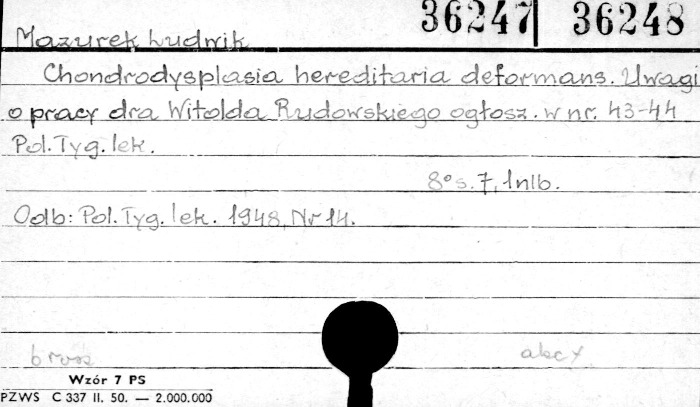 36247 36248
Mazurek Ludwik
Chondrodysplasia hereditaria deformans. Uwagi
o pracy dra Witolda Rudowskiego ogłosz. w nr. 43-44
Pol. Tyg. lek.
8° s. 7, 1 nlb.
Odb: Pol. Tyg. lek. 1948, Nr 14.
brosz
Wzór 7 PS
PZWS C 337 II. 50. — 2.000.000